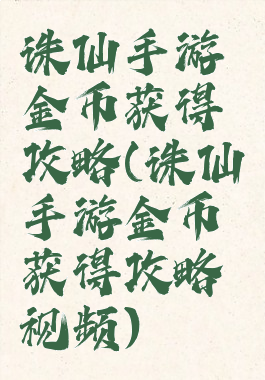 诛仙手游
金币获得
攻略(诛仙
手游金币
获得攻略
视频)